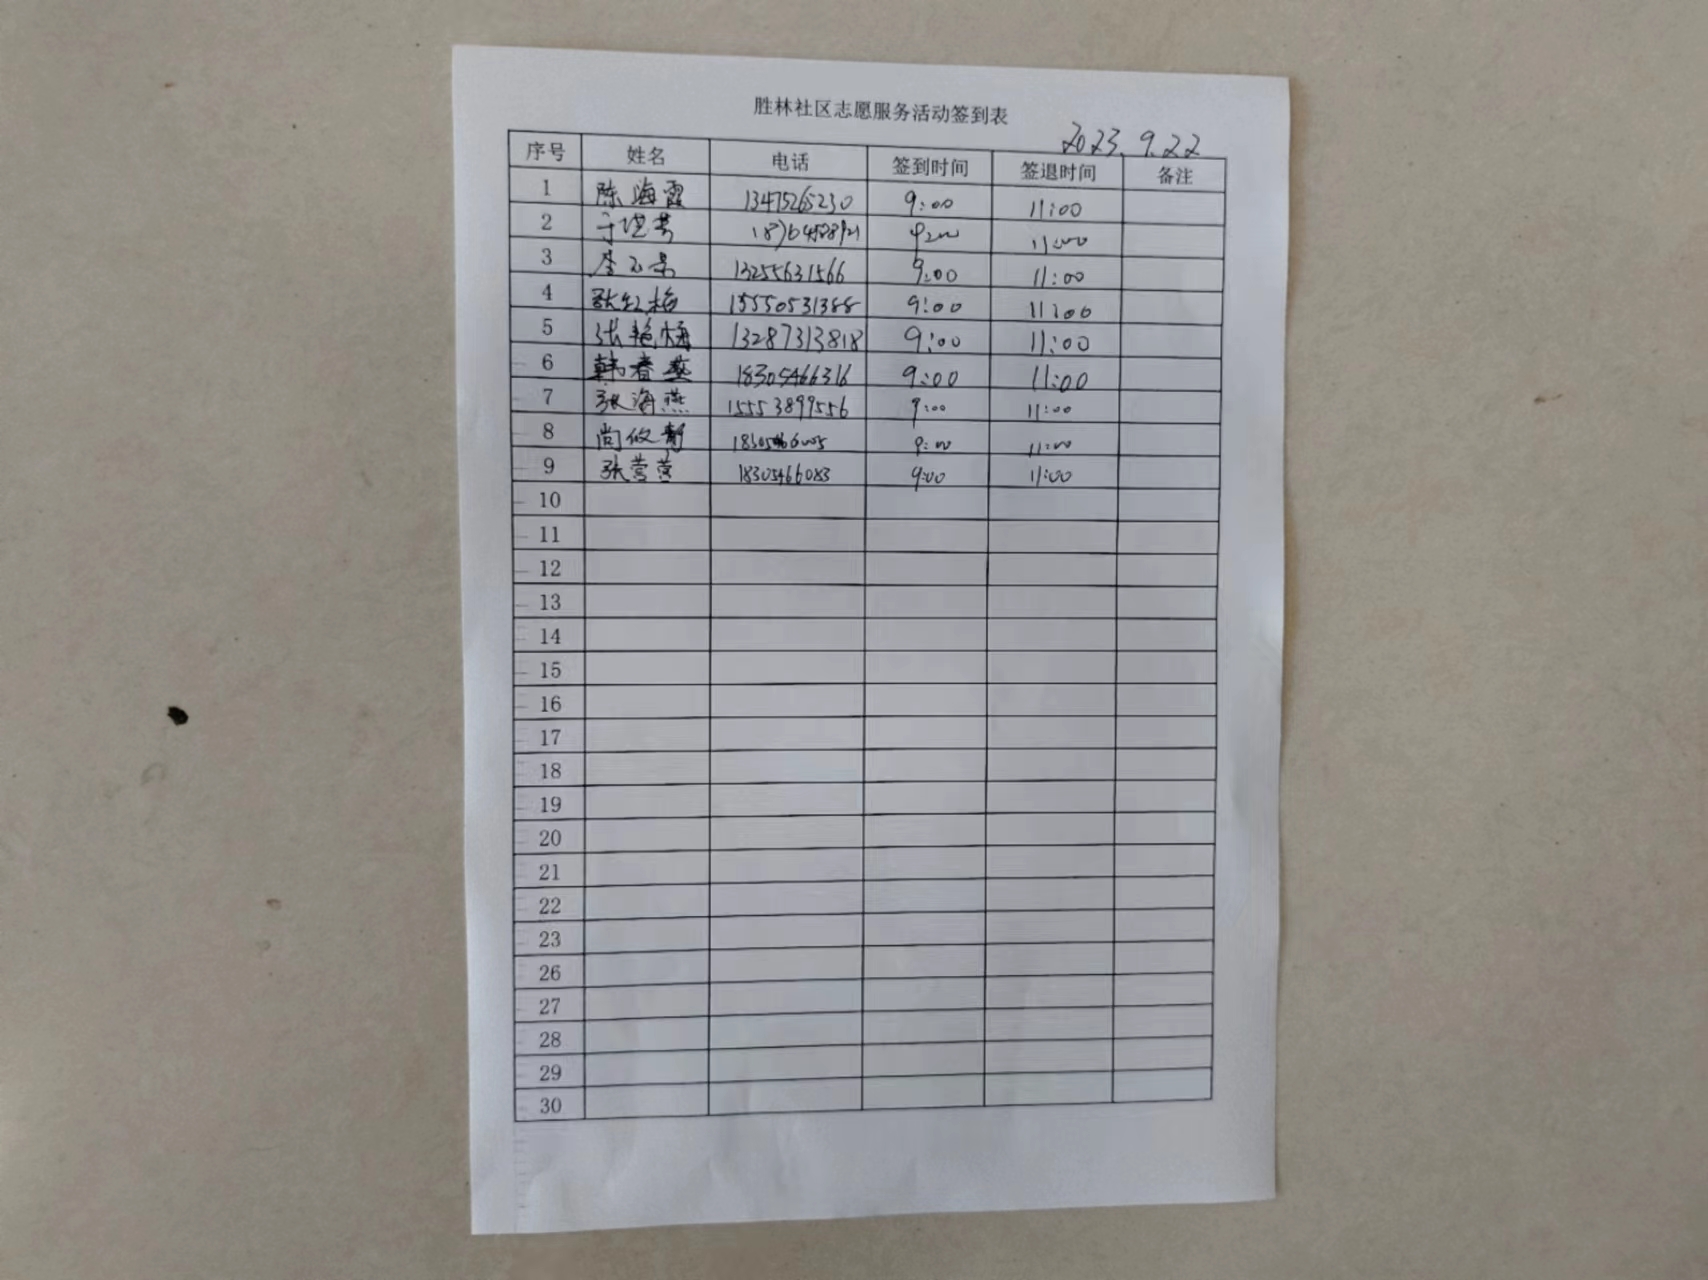 胜林社区志愿服务活动签到表
2023.9.22
序号 姓名 电话 签到时间 签退时间 备注
1 陈海霞 13475265230 9:00 11:00
2 11:00
3 13255631566 9:00 11:00
4 张红梅 15550531388 9:00 11:00
5 张艳梅 13287313818 9:00 11:00
6 韩春燕 18305466316 9:00 11:00
7 张海燕 15553899556 9:00 11:00
8 尚攸静 9:00 11:00
9 张营营 18305466083 9:00 11:00
10
11
12
13
14
15
16
17
18
19
20
21
22
23
26
27
28
29
30